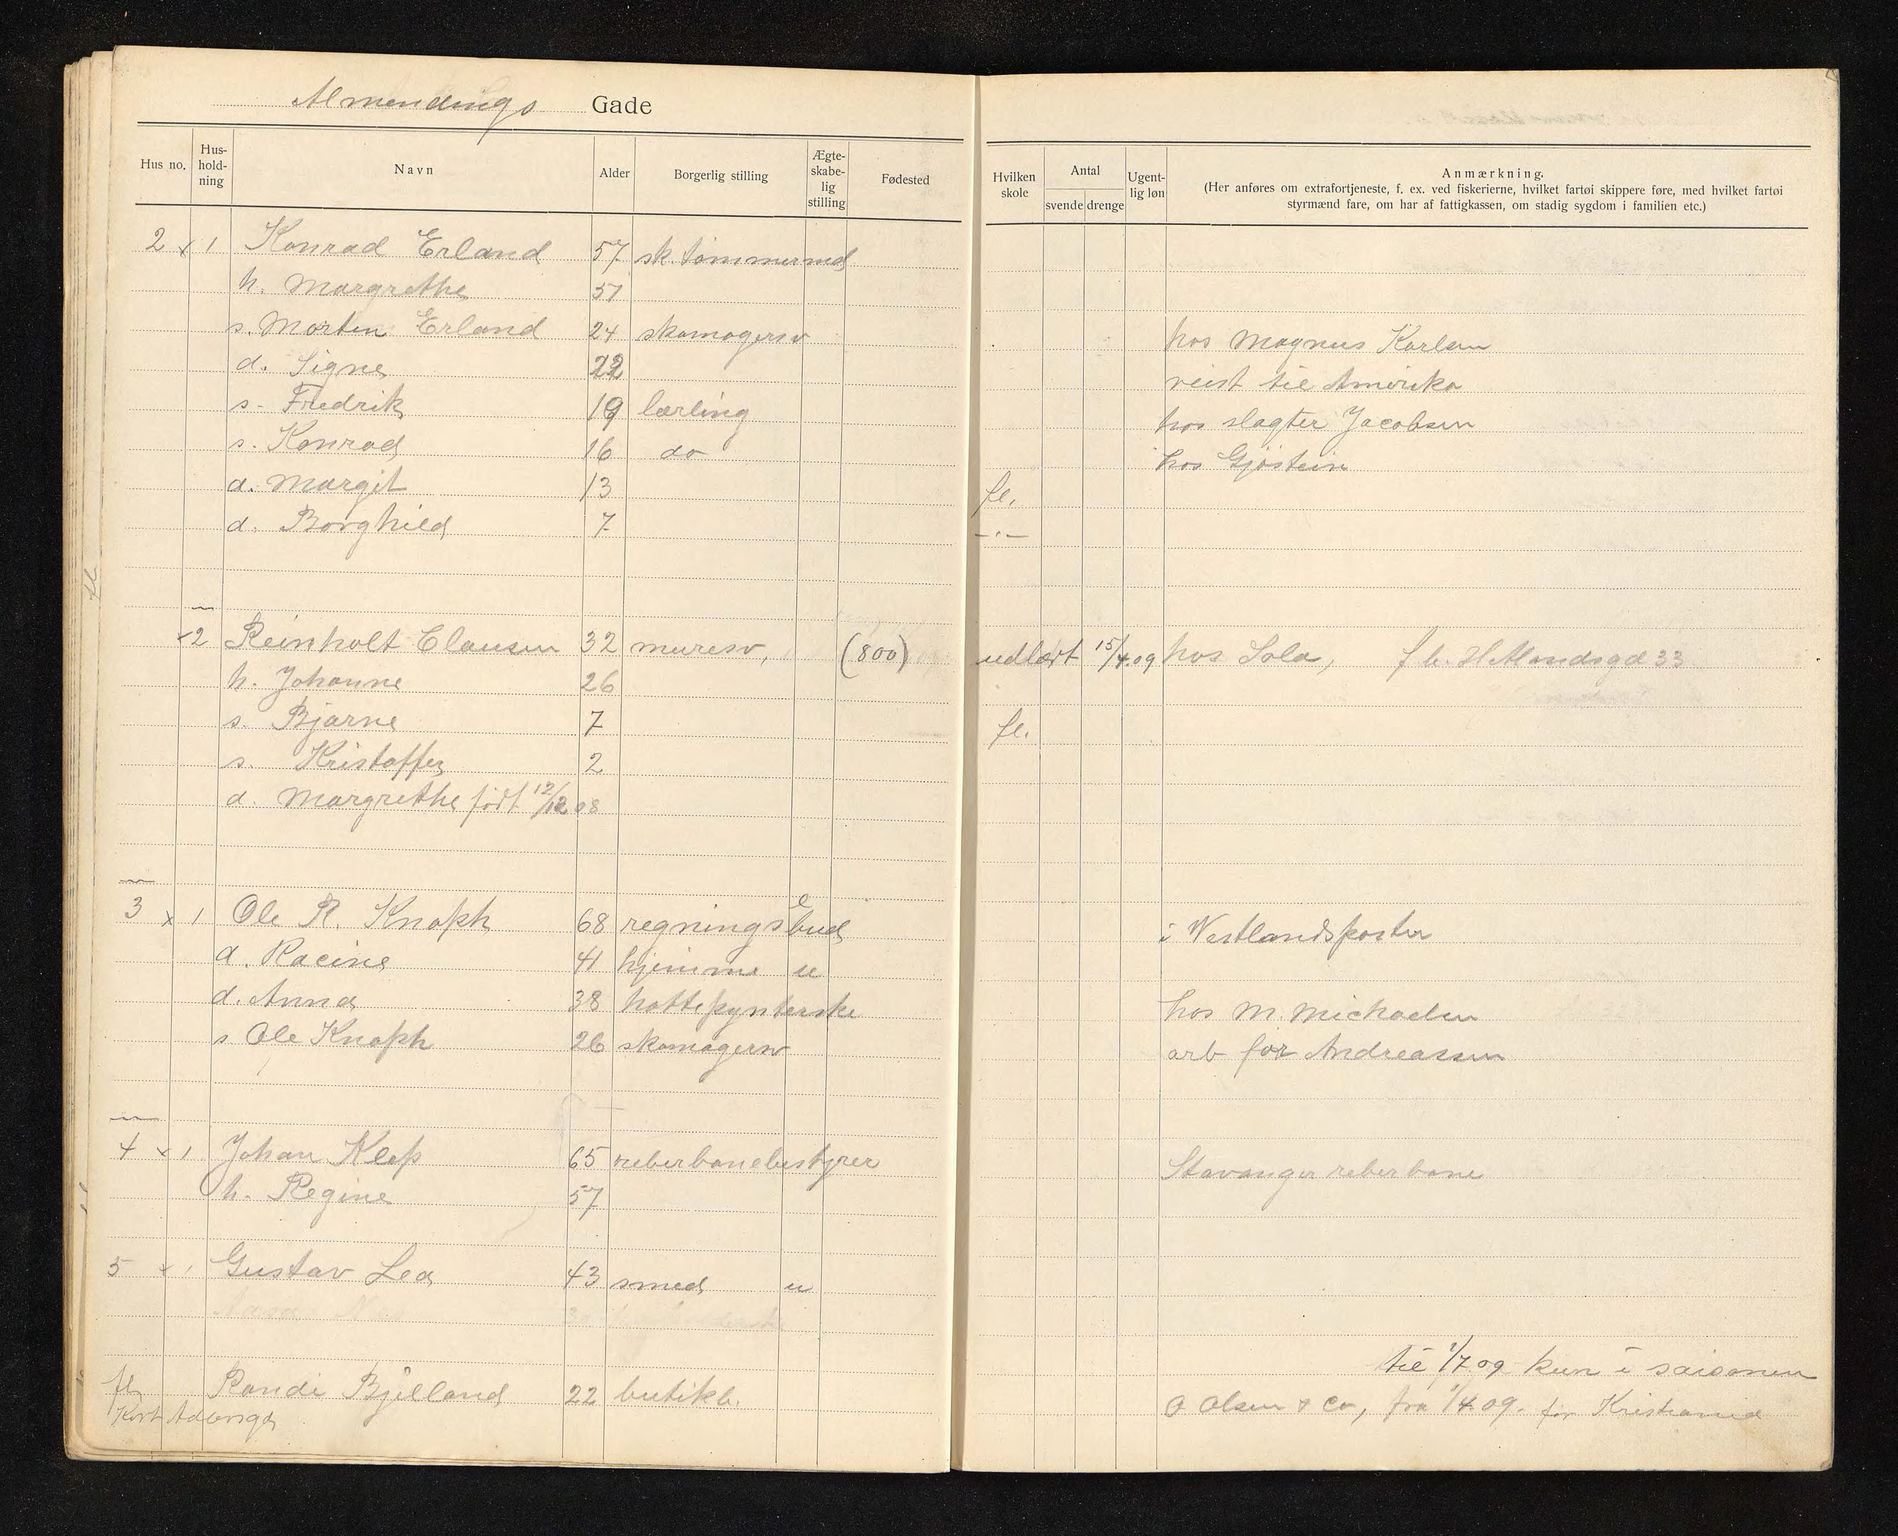 Almendings Gade
Hus no. Hus-hold-ning Navn Alder Borgerlig stilling Ægte-skabe-lig stilling Fødested Hvilken skole Antal svende drenge Ugent-lig løn Anmærkning.
(Her anføres om extrafortjeneste, f. ex. ved fiskerierne, hvilket fartøi skippere føre, med hvilket fartøi
styrmænd fare, om har af fattigkassen, om stadig sygdom i familien etc.)
2 x 1 Konrad Erland 57 sk. tømmermd
h. Margrethe 57
s. Morten Erland 24 skomagersv hos Magnus Karlsen
d. Signe 22 reist til Amerika
s. Fredrik 19 lærling hos slagter Jacobsen
s. Konrad 16 do hos Gjøstein
d. Margit 13 fl.
d. Borghild 7 -"-
x 2 Reinholt Clausen 32 muresv, (800) udlært 15/4.09 hos Sola, f b. Hetlandsgd 33
h. Johanne 26
s. Bjarne 7 fl.
s. Kristoffer 2
d. Margrethe født 12/12 08
3 x 1 Ole R. Knoph 68 regningsbud e i Vestlandsposten
d. Racine 41 hjemme u
d. Anna 38 hattepynterske hos M. Michaelsen
s Ole Knoph 26 skomagersv arb for Andreassen
4 x 1 Johan Klep 65 reberbanebestyrer Stavanger reberbane
h. Regine 57
5 x 1 Gustav Lea 43 smed u
til 1/7 09 kun i saisonen
fl Randi Bjelland 22 butikb. O Olsen & Co, fra 1/4 09. for Kristiania